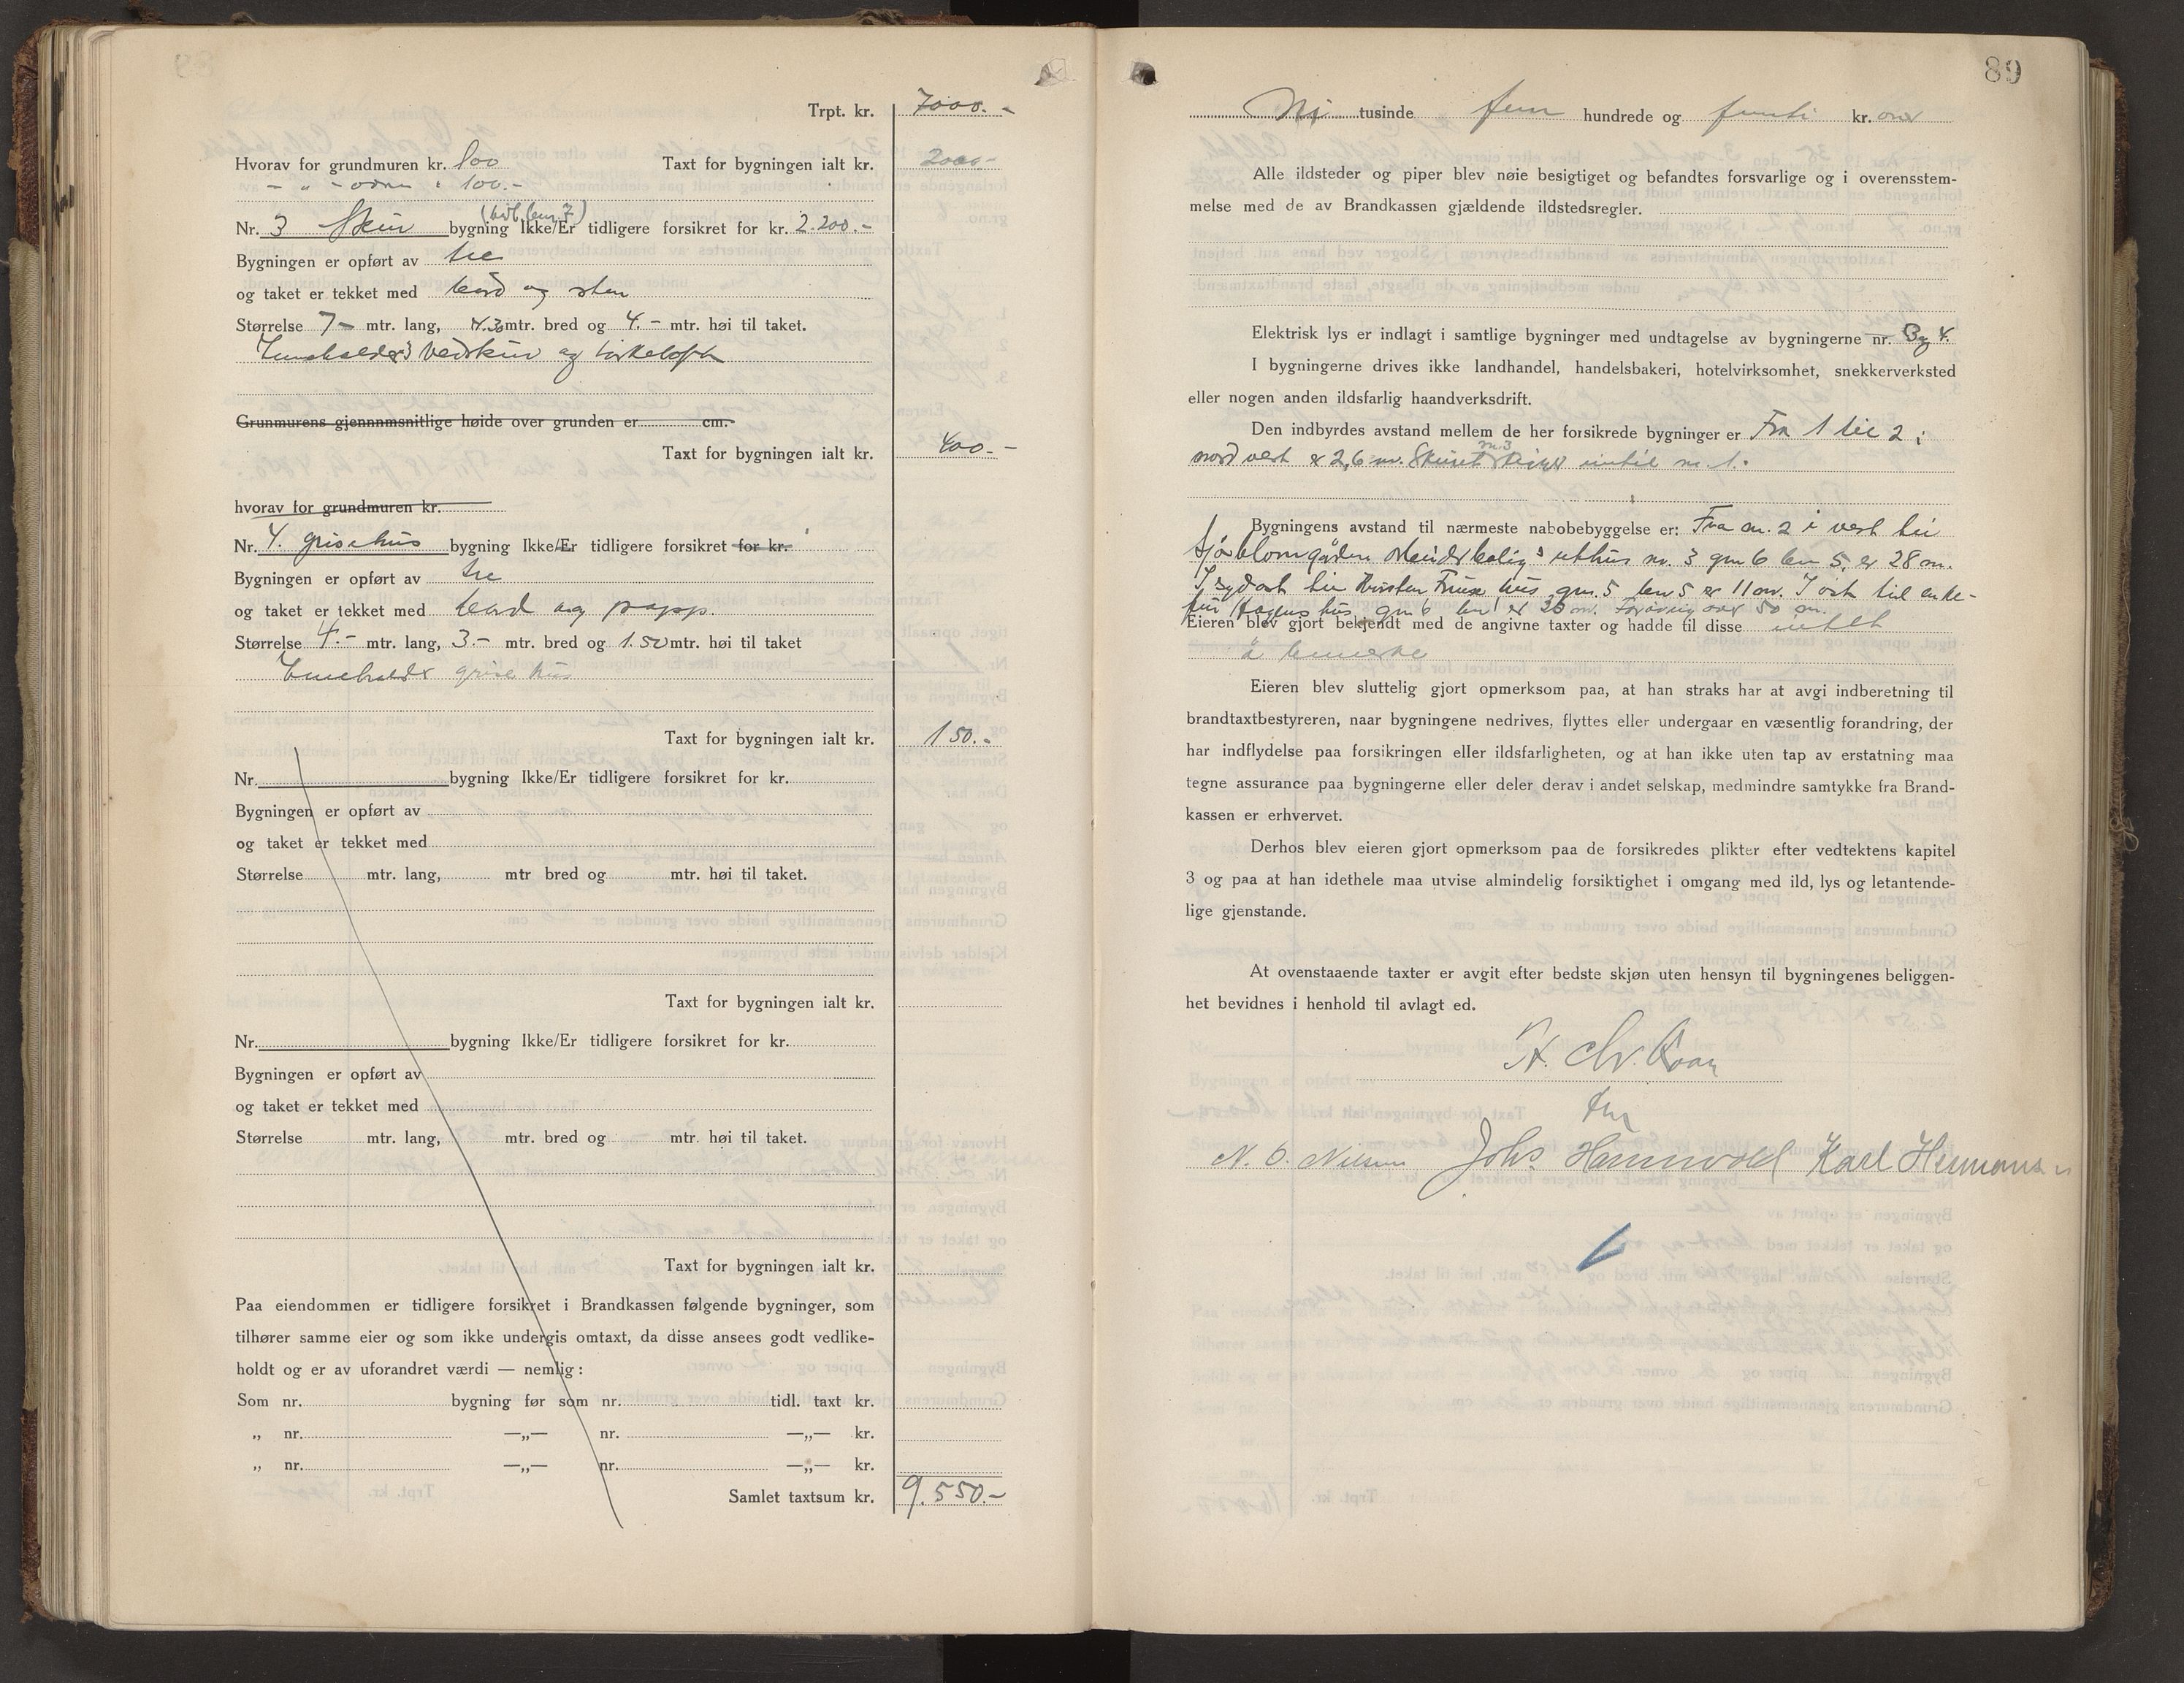 Trpt. kr. 7000.-
Hvorav for grundmuren kr. 800 Taxt for bygningen ialt kr. 2000.-
- „ - ovnen „ 100.-
Nr. 3 Skur bygning Ikke/Er tidligere forsikret for kr. 2.200.-
Bygningen er opført av tre
og taket er tekket med bord og sten
Størrelse 7- mtr. lang, 4.30 mtr. bred og 4.- mtr. høi til taket.
Inneholder vedskur og
Grunmurens gjennnmsnitlige høide over grunden er cm.
Taxt for bygningen ialt kr. 400.-
hvorav for grundmuren kr.
Nr. 4. grisehus bygning Ikke/Er tidligere forsikret for kr.
Bygningen er opført av tre
og taket er tekket med bord og papp.
Størrelse 4.- mtr. lang, 3.- mtr. bred og 1.50 mtr. høi til taket
Inneholder grisehus
Taxt for bygningen ialt kr. 150.-
Nr. bygning Ikke/Er tidligere forsikret for kr.
Bygningen er opført av
og taket er tekket med
Størrelse mtr. lang, mtr bred og mtr. høi til taket.
Taxt for bygningen ialt kr.
Nr. bygning Ikke/Er tidligere forsikret for kr.
Bygningen er opført av
og taket er tekket med
Størrelse mtr. lang, mtr. bred og mtr. høi til taket.
Taxt for bygningen ialt kr.
Paa eiendommen er tidligere forsikret i Brandkassen følgende bygninger, som
tilhører samme eier og som ikke undergis omtaxt, da disse ansees godt vedlike-
holdt og er av uforandret værdi — nemlig:
Som nr. bygning før som nr. tidl. taxt kr.
„ nr. —„— nr. —„— kr.
„ nr. —„— nr. —„— kr.
Samlet taxtsum kr. 9.550.-
89
Ni tusinde fem hundrede og femti kr.
Alle ildsteder og piper blev nøie besigtiget og befandtes forsvarlige og i overensstem-
melse med de av Brandkassen gjældende ildstedsregler.
Elektrisk lys er indlagt i samtlige bygninger med undtagelse av bygningerne nr. 3 og 4.
I bygningerne drives ikke landhandel, handelsbakeri, hotelvirksomhet, snekkerverksted
eller nogen anden ildsfarlig haandverksdrift.
Den indbyrdes avstand mellem de her forsikrede bygninger er Fra 1 til 2 i
nord vest er 2,6 m. Skuret nr. 3 inntil nr. 1.
Bygningens avstand til nærmeste nabobebyggelse er: Fra nr. 2 i vest til
uthus nr. 3 gn 6 bn 5, er 28 m.
I syd øst til hus gn. 5 bn 5 er 11 m. I øst til enke-
fru hus gn 6 bn 1 er 30 m. Forøvrig over 50 m.
Eieren blev gjort bekjendt med de angivne taxter og hadde til disse intet
å bemerke
Eieren blev sluttelig gjort opmerksom paa, at han straks har at avgi indberetning til
brandtaxtbestyreren, naar bygningene nedrives, flyttes eller undergaar en væsentlig forandring, der
har indflydelse paa forsikringen eller ildsfarligheten, og at han ikke uten tap av erstatning maa
tegne assurance paa bygningerne eller deler derav i andet selskap, medmindre samtykke fra Brand-
kassen er erhvervet.
Derhos blev eieren gjort opmerksom paa de forsikredes plikter efter vedtektens kapitel
3 og paa at han idethele maa utvise almindelig forsiktighet i omgang med ild, lys og letantende-
lige gjenstande.
At ovenstaaende taxter er avgit efter bedste skjøn uten hensyn til bygningenes beliggen-
het bevidnes i henhold til avlagt ed.
N. O. Nilsen Johs. Hamnvold Karl Hermansen